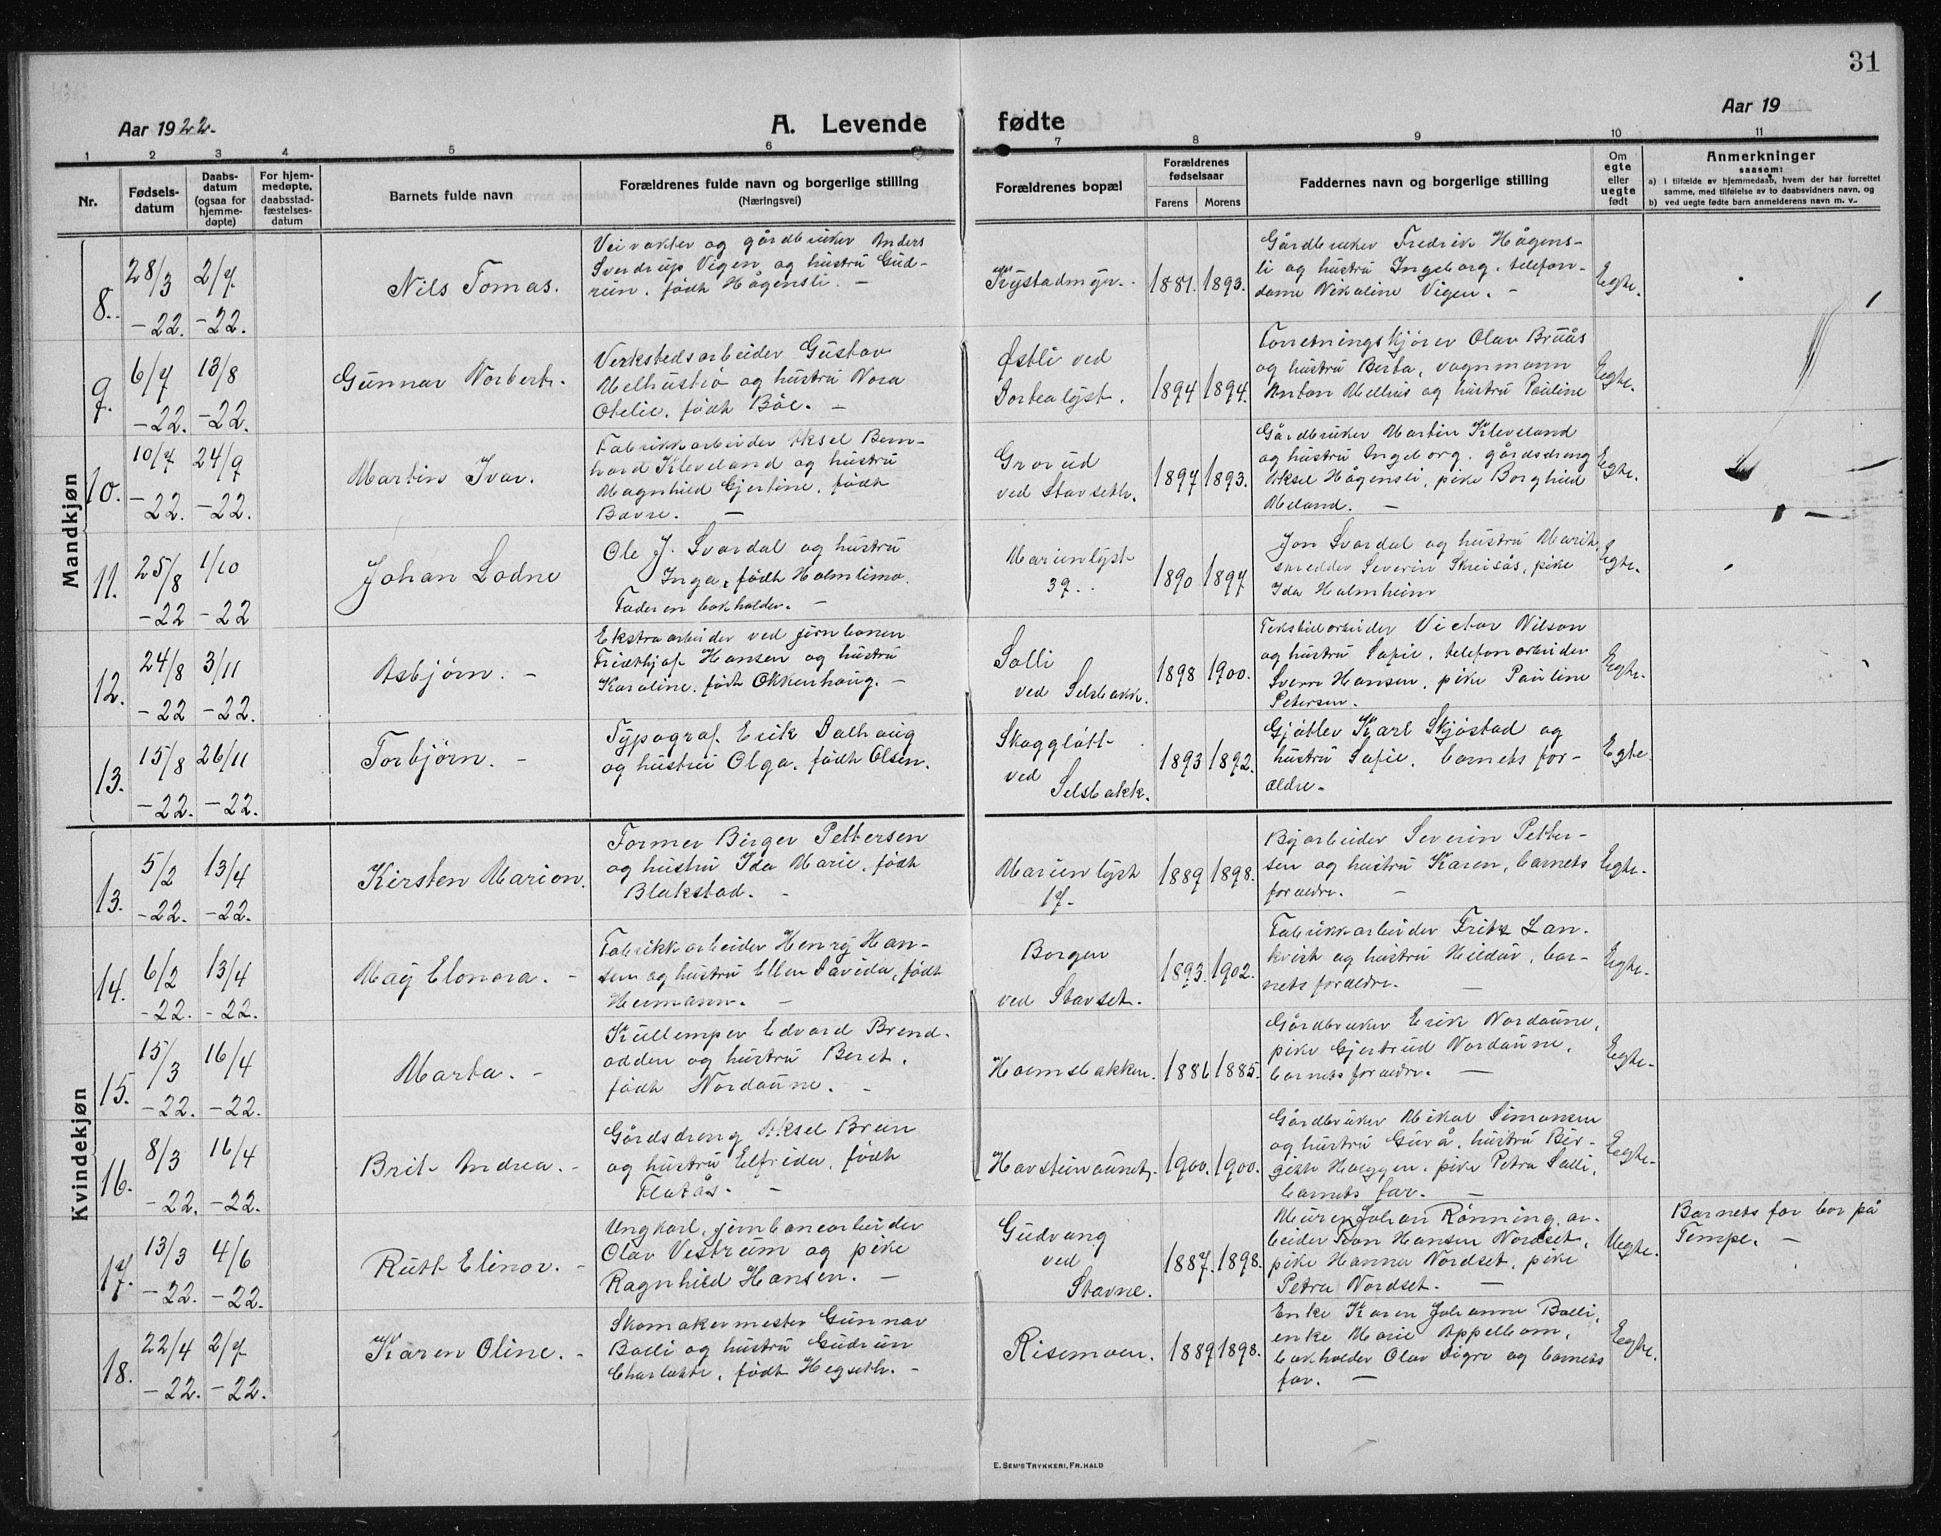 31
Aar 1922.
A. Levende fødte
Aar 19
1 2 3 4 5 6 7 8 9 10 11
Nr.
Fødsels-
datum
Daabs-
datum
(ogsaa for
hjemme-
døpte)
For hjem-
medøpte,
daabsstad-
fæstelses-
datum
Barnets fulde navn
Forældrenes fulde navn og borgerlige stilling
(Næringsvei)
Forældrenes bopæl
Forældrenes
fødselsaar
Farens Morens
Faddernes navn og borgerlige stilling
Om
egte
eller
uegte
født
Anmerkninger
saasom:
a) i tilfælde av hjemmedaab, hvem der har forrettet
samme, med tilføielse av to daabsvidners navn, og
b) ved uegte fødte barn anmelderens navn m. v..
Mandkjøn
8. 28/3 -22. 2/7 -22.
Nils Tomas.
Veivokter og gårdbruker Anders
Sverdrup Vigen og hustru Gud-
run, født Hågensli. -
Kystadmyr.
1881. 1893.
Gårdbruker Fredrik Hågens-
li og hustru Ingeborg, telefon-
dame Nikoline Vigen. -
Egte.
9. 6/7 -22. 13/8 -22.
Gunnar Norbert.
Verkstedsarbeider Gustav
Melhustrø og hustru Nora
Otelie, født Böe. -
Østli ved
Dortealyst.
1894 1894.
Forretningskjører Olav Bruås
og hustru Berta, vognmann
Anton Melhus og hustru Pauline
Egte.
10. 10/7 -22. 24/9 -22.
Martin Ivar.
Fabrikkarbeider Aksel Bern-
hard Kleveland og hustru
Magnhild Gjertine, født
Bävre. -
Grorud
ved Stavseth.
1897 1893.
Gårdbruker Martin Kleveland
og hustru Ingeborg, gårdsdreng
Aksel Hågensli, pike Borghild
Meland. -
Egte.
11. 25/8 -22 1/10 -22
Johan Lodne
Ole J. Svardal og hustru
Inga, født Holmlimo.
Faderen bokholder. -
Marienlyst
39.
1890 1897
Jon Svardal og hustru Marit,
skredder Severin Skreisås, pike
Ida Holmheim
Egte.
12. 24/8 -22 3/11 -22.
Asbjørn. -
Ekstraarbeider ved jernbanen
Fridthjof Hansen og hustru
Karoline, født Okkenhaug. -
Solli
ved Selsbakk.
1898 1900.
Tekstilarbeider Victor Nilson
og hustru Sofie, telefonarbeider
Sverre Hansen, pike Pauline
Petersen.
Egte.
13. 15/8 -22. 26/11 -22.
Torbjørn. -
Typograf Erik Dalhaug
og hustru Olga, født Olsen.
Skogglött
ved
Selsbakk.
1893 1892.
Gjøtler Karl Skjøstad og
hustru Sofie, barnets for-
ældre.
Egte
Kvindekjøn
13. 5/2 -22. 13/4 -22.
Kirsten Marion.
Former Birger Pettersen
og hustru Ida Marie, født
Blakstad. -
Marienlyst
17.
1889 1898.
Byarbeider Severin Petter-
sen og hustru Karen, barnets
forældre. -
Egte.
14. 6/2 -22. 13/4 -22.
May Elonora. -
Fabrikkarbeider Henry Han-
sen og hustru Ellen Davida, født
Heimann. -
Borgen
ved Stavset.
1893. 1902.
Fabrikkarbeider Fritz Lan-
kvist og hustru Hildur, bar-
nets forældre. -
Egte.
15. 15/3 -22. 16/4 -22.
Marta. -
Kullemper Edvard Brend-
odden og hustru Beret,
født Nordaune. -
Holmsbakken.
1886 1885.
Gårdbruker Erik Nordaune,
pike Gjertrud Nordaune,
barnets forældre. -
Egte.
16. 8/3 -22. 16/4 -22.
Brit Andrea. -
Gårdsdreng Aksel Brein
og hustru Elfrida, født
Flatås. -
Havsteinaunet.
1900. 1900.
Gårdbruker Mikal Simonsen
og hustru Gurå, hustru Bir-
gitt Haeggen, pike Petra Solli,
barnets far. -
Egte.
17. 13/3 -22. 4/6 -22.
Rutt Elinor. -
Ungkarl, jernbanearbeider
Olav Vestrum og pike
Ragnhild Hansen. -
Gudvang
ved
Stavne.
1887. 1898.
Murer Johan Rønning, ar-
beider Tron Hansen Nordset,
pike Hanna Nordset, pike
Petra Nordset. -
Uegte.
Barnets far bor på
Tempe. -
18. 22/4 -22. 2/7 -22.
Karen Oline. -
Skomakermester Gunnar
Bolli og hustru Gudrun
Charlotte, født Hegseth. -
Risemoen.
1889 1898.
Enke Karen Johanne Bolli,
enke Marie Appelbom,
bokholder Olav Digre og barnets
far. -
Egte.
E. SEM'S TRYKKERI, FR.HALD